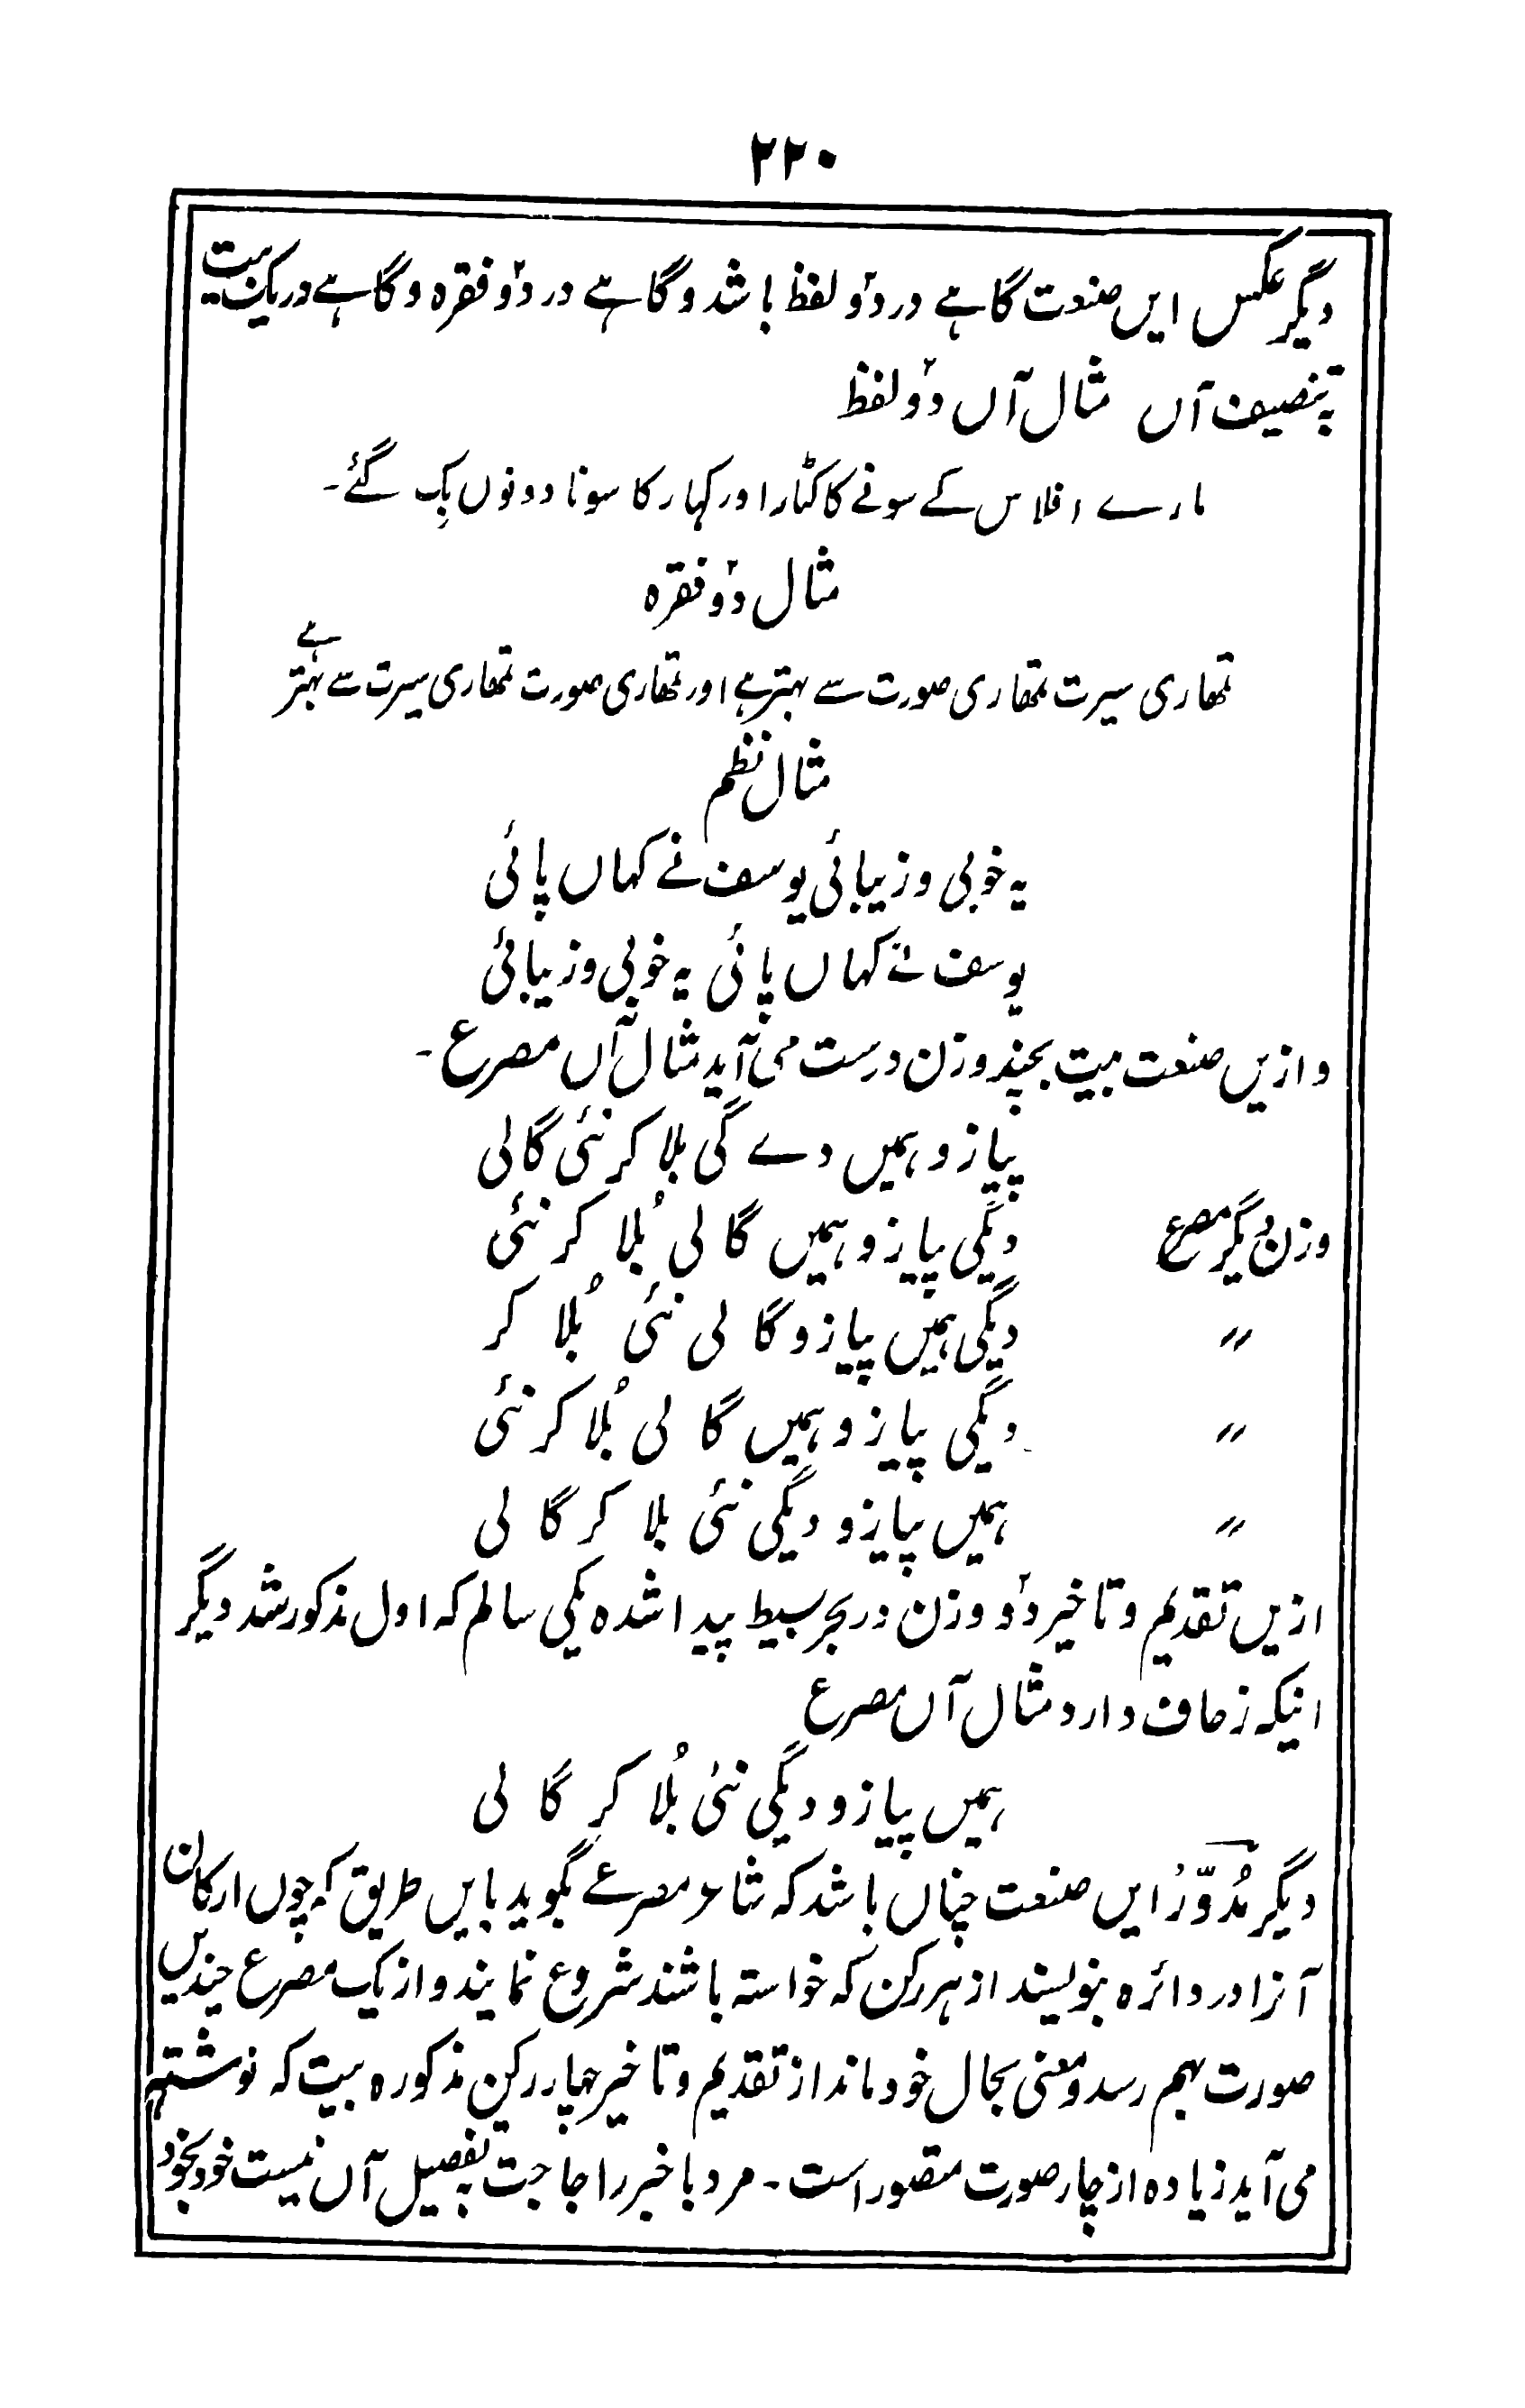 ۲۲۰
دیگر عکس ایں صنعت گاہے در دو لفظ باشد و گاہے در دو فقرہ و گاہے در یک بیت
بتنصیف آں مثال آں دو لفظ
مارے افلاس کے سونے کا کٹار اور کہار کا سونا دونوں بِک گئے۔
مثال دو فقرہ
تمھاری سیرت تمھاری صورت سے بہتر ہے اور تمھاری صورت تمھاری سیرت سے بہتر ہے
مثال نظم
یہ خوبی و زیبائی یوسف نے کہاں پائی
یوسف نے کہاں پائی یہ خوبی و زیبائی
و ازیں صنعت بیت بچند وزن درست می آید مثال آں مصرع۔
پیازو ہمیں دے گی بلا کر نئی گالی
وزن دیگر مصرع دیگی پیازو ہمیں گالی بُلا کر نئی
〃 دیگی ہمیں پیازو گالی نئی بُلا کر
〃 دیگی پیازو ہمیں گالی بُلا کر نئی
〃 ہمیں پیازو دیگی نئی بلا کر گالی
ازیں تقدیم و تاخیر دو وزن در بحر بسیط پیدا شدہ یکی سالم کہ اول مذکور شد دیگر
اینکہ زحاف دارد مثال آں مصرع
ہمیں پیازو دیگی نئی بُلا کر گالی
دیگر مُدوَّر ایں صنعت چناں باشد کہ شاعر مصرعے بگوید بایں طریق کہ چوں ارکان
آنرا در دائرہ بنویسند از ہر رکن کہ خواستہ باشند شروع نمایند و از یک مصرع چندیں
صورت بہم رسد و معنی بحال خود ماند از تقدیم و تاخیر چہار رکن مذکورہ بیت کہ نوشتہ
می آید زیادہ از چار صورت متصور است۔ مرد با خبر را حاجت بتفصیل آں نیست خود بخود